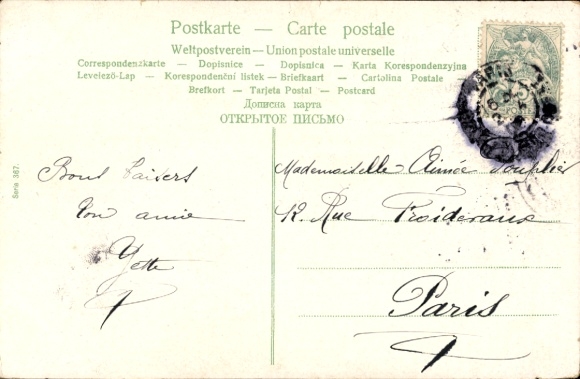 Postkarte — Carte postale
Weltpostverein — Union postale universelle
Correspondenzkarte — Dopisnice — Dopisnica — Karta Korespondenzyjna
Levelező-Lap — Korespondenční listek — Briefkaart — Cartolina Postale
Brefkort — Tarjeta Postal — Postcard
Дописна карта
ОТКРЫТОЕ ПИСЬМО
Serie 367.
Bons baisers
Ton amie
Yette
Mademoiselle Aimée
12. Rue Froidevaux
Paris